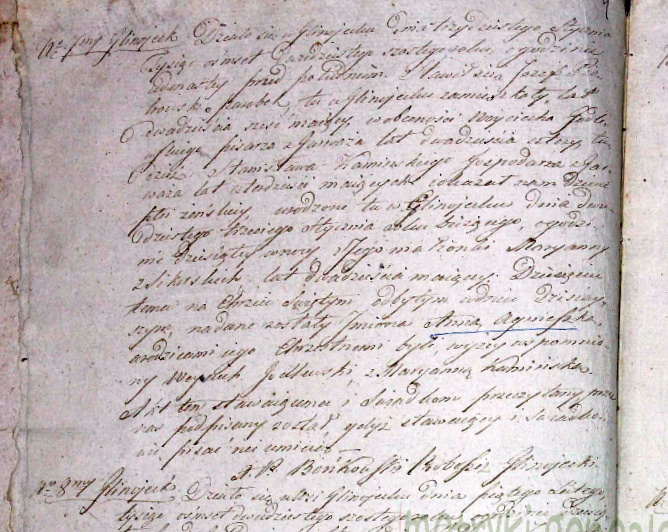 Nr 7my Glinojeck Działo się w Glinojecku dnia trzydziestego Stycznia
tysiąc ośmset dwudziestego szóstego roku, o godzinie
jedenastey przed południem. Stawił się Jozef
parobek, tu w Glinojecku zamieszkały, lat
dwadzieścia sześć maiący w obecności Woyciecha
pisarza z Garwarza lat dwadzieścia cztery, tu
dzież Stanisława Kaminskiego Gospodarza z Gar
warza lat maiących i okazał nam Dziecie
płci żeńskiey, urodzone tu w Glinojecku dnia dwu
dziestego Stycznia roku bieżącego, o godzi
nie dziesiątey w nocy z Jego małżonki Maryanny
z Sikorskich lat dwadzieścia maiącey. Dziecięciu
temu na Chrzcie Swiętym odbytym w dniu dzisiey
szym, nadane zostały Imiona Anna, Agnieszka,
a rodzicami iego Chrzestnemi byli wyżey wspomnio
ny Woyciech z Maryanną Kamińską.
Akt ten stawaiącemu i Swiadkom przeczytany przez
nas podpisany został, gdyż stawaiący i Swiadko
wie pisać nie umieią
X. Bonkowski Glinojecki
Nr 8my Glinojeck Działo się w Wsi Glinojecku dnia piątego Lutego,
tysiąc ośmset dwudziestego szóstego roku, o godzinie